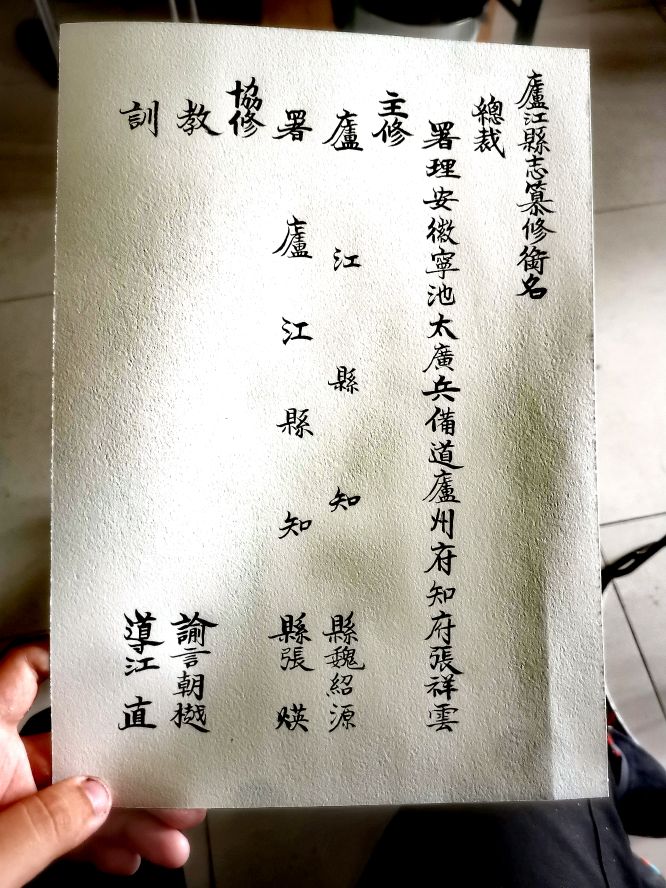 廬江縣志纂修銜名
總裁
署理安徽寧池太廣兵備道廬州府知府張祥雲
主修
廬江縣知縣魏紹源
署廬江縣知縣張煐
協修
教諭言朝樾
訓導江直